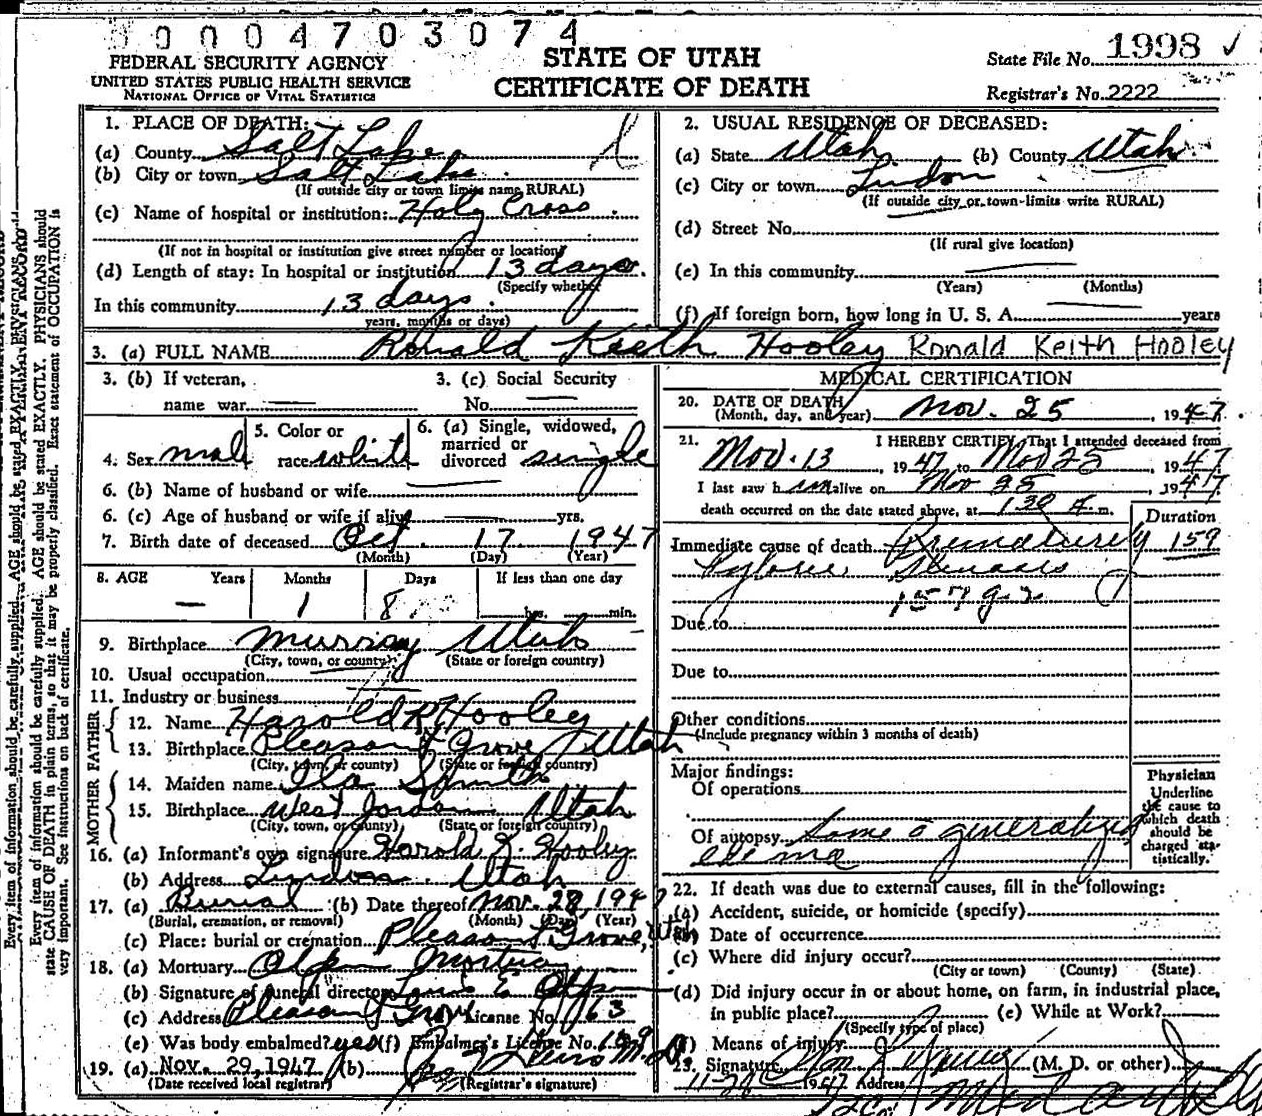 0004703074
FEDERAL SECURITY AGENCY
UNITED STATES PUBLIC HEALTH SERVICE
NATIONAL OFFICE OF VITAL STATISTICS
STATE OF UTAH
CERTIFICATE OF DEATH
State File No. 1998 ✓
Registrar's No. 2222
1. PLACE OF DEATH:
(a) County Salt Lake
(b) City or town Salt Lake
(If outside city or town limits name RURAL)
(c) Name of hospital or institution: Holy Cross
(If not in hospital or institution give street number or location)
(d) Length of stay: In hospital or institution 13 days.
(Specify whether
In this community 13 days.
years, months or days)
2. USUAL RESIDENCE OF DECEASED:
(a) State Utah (b) County Utah
(c) City or town Lindon
(If outside city or town limits write RURAL)
(d) Street No.
(If rural give location)
(e) In this community
(Years) (Months)
(f) If foreign born, how long in U. S. A. years
3. (a) FULL NAME Ronald Keith Hooley Ronald Keith Hooley
3. (b) If veteran,
name war
3. (c) Social Security
No.
4. Sex male
5. Color or
race white
6. (a) Single, widowed,
married or
divorced single
6. (b) Name of husband or wife
6. (c) Age of husband or wife if alive yrs.
7. Birth date of deceased Oct. 17 1947
(Month) (Day) (Year)
8. AGE Years Months Days If less than one day
— 1 8 hrs. min.
9. Birthplace Murray Utah
(City, town, or county) (State or foreign country)
10. Usual occupation
11. Industry or business
FATHER
12. Name Harold R Hooley
13. Birthplace Pleasant Grove Utah
(City, town, or county) (State or foreign country)
MOTHER
14. Maiden name Ila Smith
15. Birthplace West Jordan Utah
(City, town, or county) (State or foreign country)
16. (a) Informant's own signature Harold R. Hooley
(b) Address Lindon Utah
17. (a) Burial (b) Date thereof Nov. 28, 1947
(Burial, cremation, or removal) (Month) (Day) (Year)
(c) Place: burial or cremation Pleasant Grove, Utah
18. (a) Mortuary Olpin Mortuary
(b) Signature of funeral director E Olpin
(c) Address Pleasant Grove License No. 63
(e) Was body embalmed? yes (f) Embalmer's License No.
19. (a) Nov. 29, 1947 (b)
(Date received local registrar) (Registrar's signature)
MEDICAL CERTIFICATION
20. DATE OF DEATH
(Month, day, and year) Nov. 25, 1947.
21. I HEREBY CERTIFY, That I attended deceased from
Nov. 13, 1947 to Nov 25, 1947
I last saw him alive on Nov 25, 1947
death occurred on the date stated above, at 130 A. m.
Duration
Immediate cause of death Prematurely 159
Pyloric Stenosis
Due to
Due to
Other conditions
(Include pregnancy within 3 months of death)
Major findings:
Of operations
Of autopsy Same generalized
edema
Physician
Underline
the cause to
which death
should be
charged sta-
tistically.
22. If death was due to external causes, fill in the following:
(a) Accident, suicide, or homicide (specify)
(b) Date of occurrence
(c) Where did injury occur?
(City or town) (County) (State)
(d) Did injury occur in or about home, on farm, in industrial place,
in public place? (e) While at Work?
(Specify type of place)
(f) Means of injury
23. Signature (M. D. or other)
1947 Address
Every item of information should be carefully supplied. AGE should be stated EXACTLY. PHYSICIANS should
state CAUSE OF DEATH in plain terms, so that it may be properly classified. Exact statement of OCCUPATION is
very important. See instructions on back of certificate.